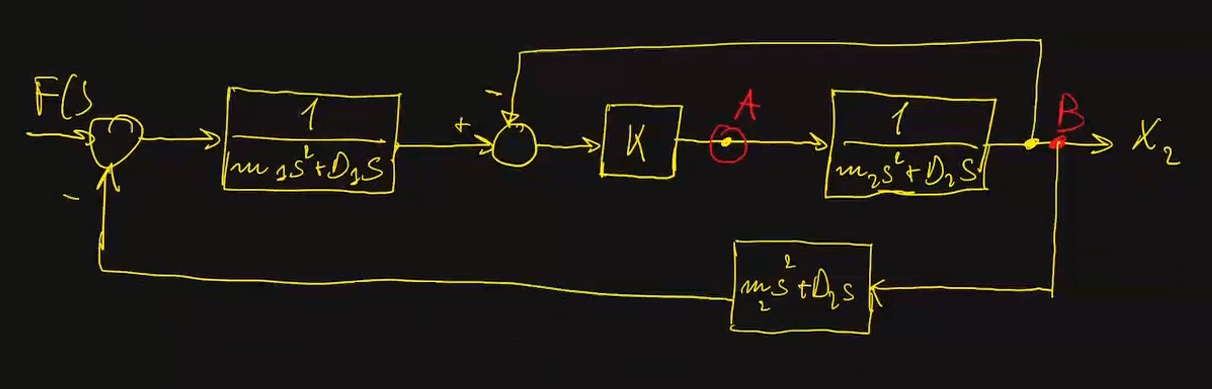 F(s
-
1
m₁s²+D₁s
+
-
K
A
1
m₂s²+D₂s
B
X₂
m₂s²+D₂s